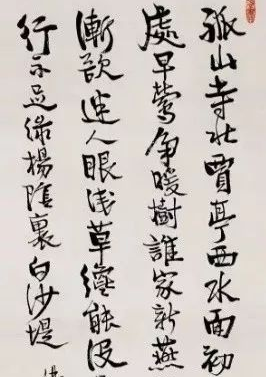 孤山寺北賈亭西水面初
處早鶯争暖樹誰家新燕
漸欲迷人眼浅草纔能没
行不足綠楊陰裏白沙堤